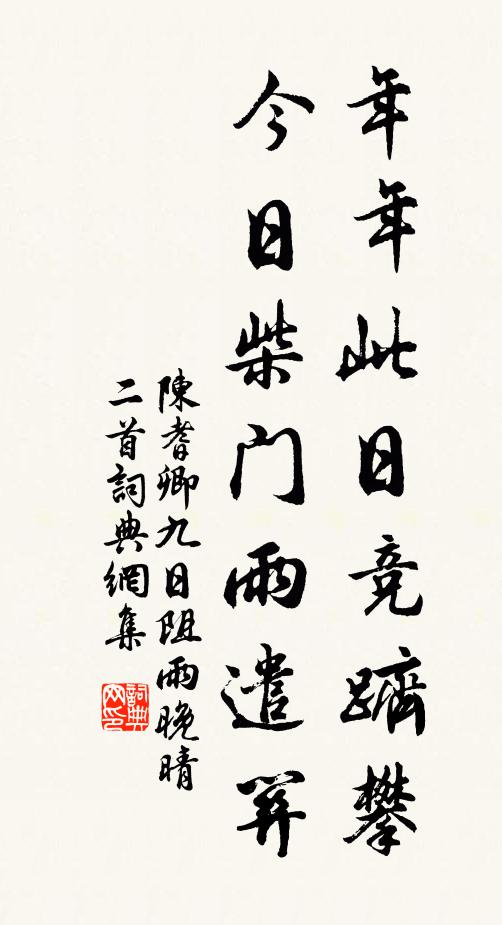 年年此日竞躋攀
今日柴门雨遣關
陳耆卿九日阻雨晚晴
二首詞典網集
詞典网印